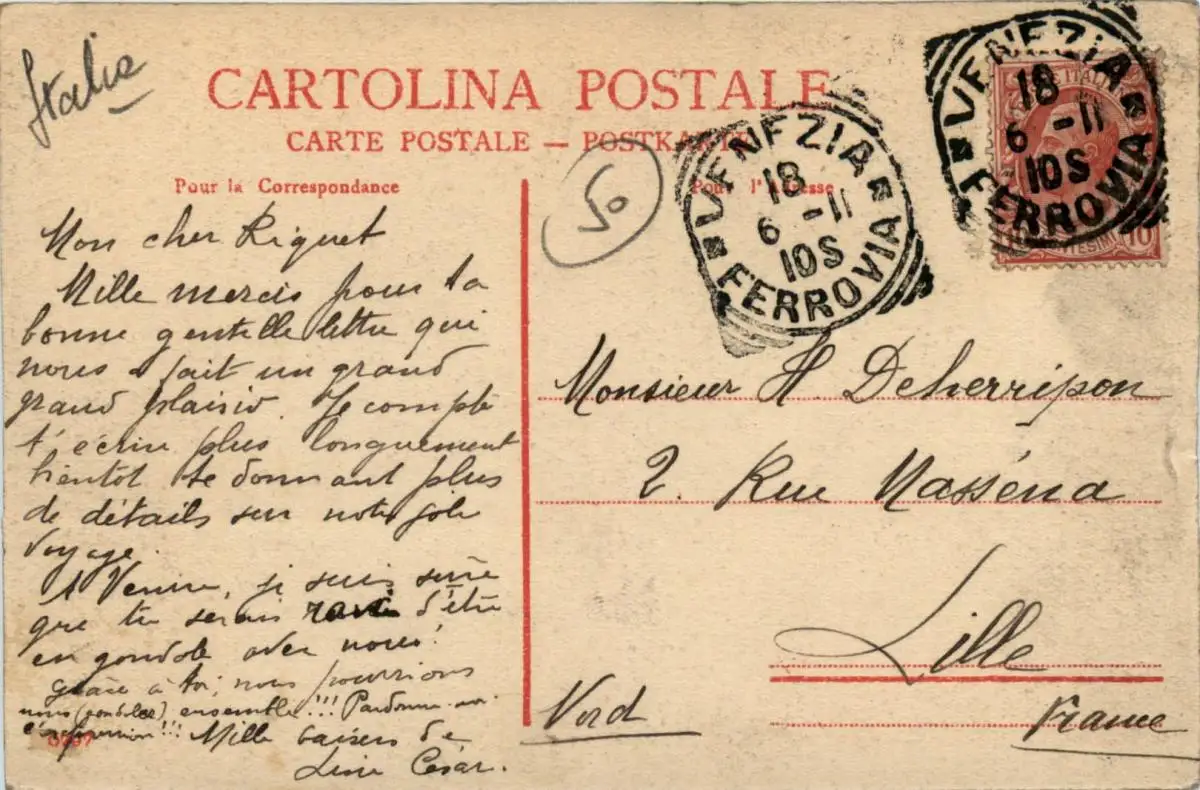 Italie
CARTOLINA POSTALE
CARTE POSTALE — POSTKARTE
Pour la Correspondance
Pour l'Adresse
50
VENEZIA
18
6 -11
10S
FERROVIA
VENEZIA
18
6 -11
10S
FERROVIA
Mon cher Riquet
Mille mercis pour ta
bonne gentille lettre qui
nous a fait un grand
grand plaisir. Je compte
t'écrire plus longuement
bientot te donnant plus
de détails sur notre joli
voyage.
A Venise, je suis sûre
que tu serais ravi d'être
en gondole avec nous!
grâce à toi, nous pourrions
nous (gondoler) ensemble!!! Pardonne-moi
l'expression!!! Mille baisers de
César.
Monsieur H. Deherripon
2. Rue Masséna
Lille
Nord
France